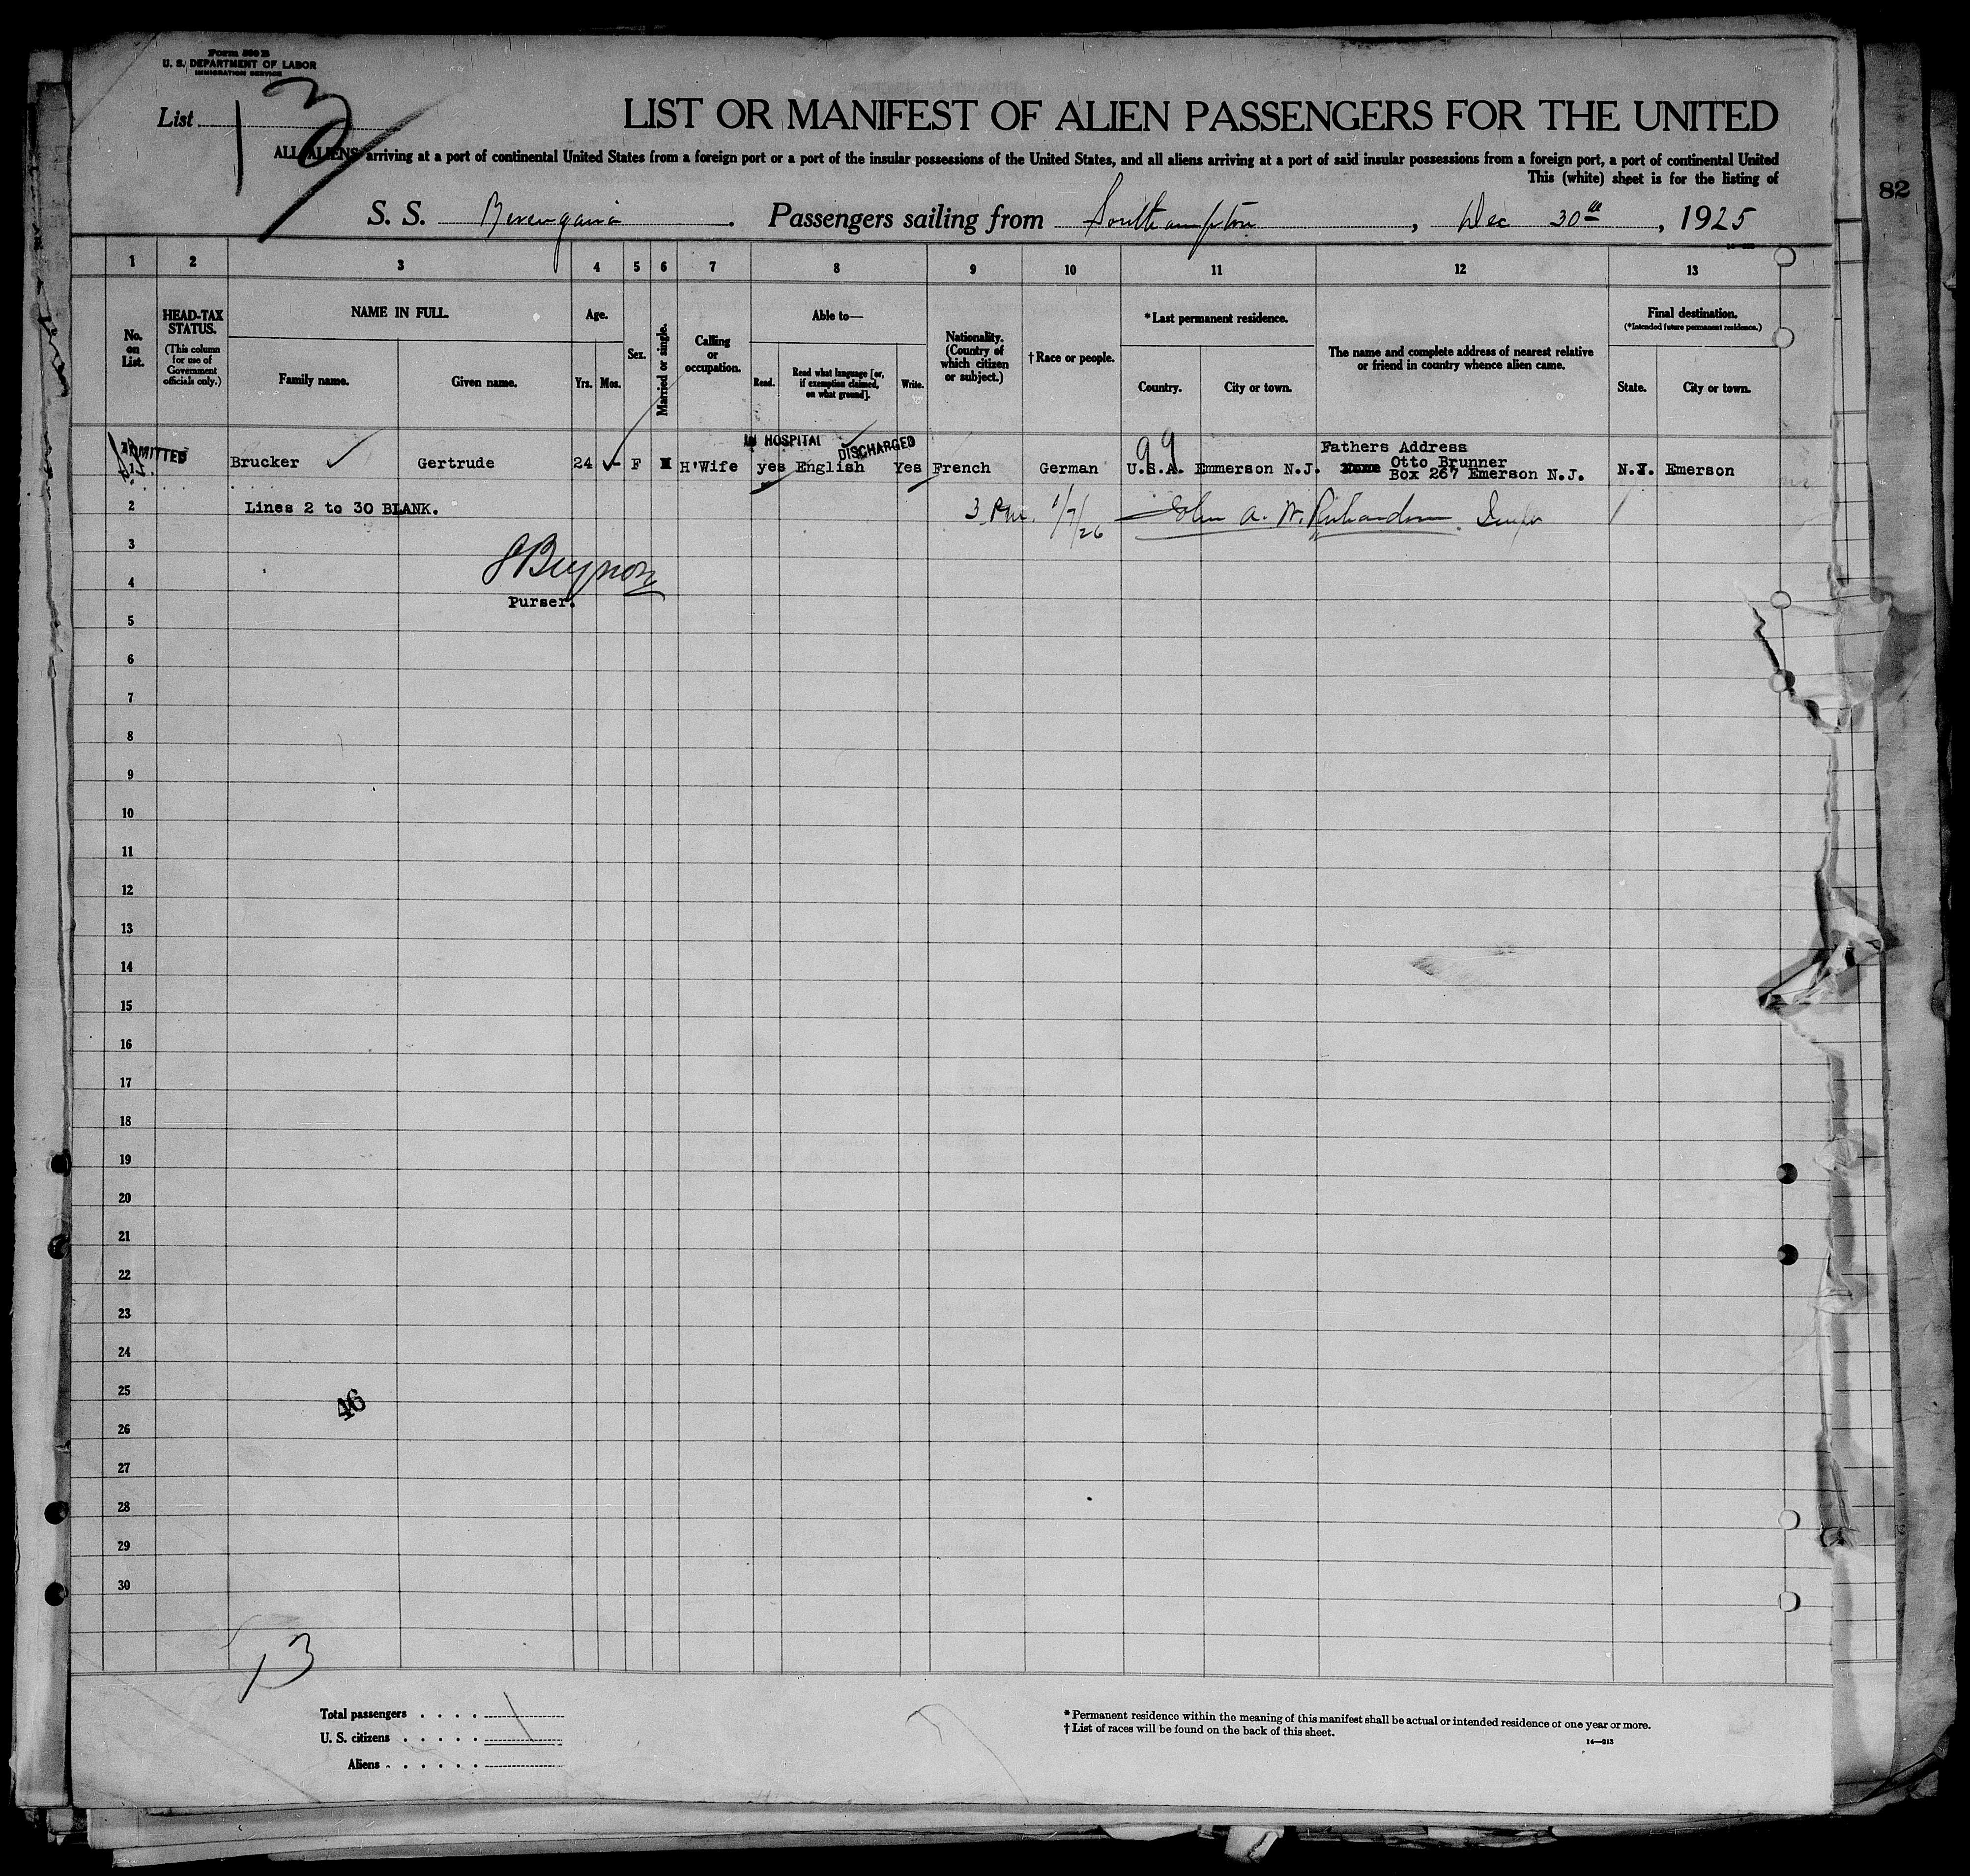 Form 500 B
U. S. DEPARTMENT OF LABOR
IMMIGRATION SERVICE
List 13
LIST OR MANIFEST OF ALIEN PASSENGERS FOR THE UNITED
ALL ALIENS arriving at a port of continental United States from a foreign port or a port of the insular possessions of the United States, and all aliens arriving at a port of said insular possessions from a foreign port, a port of continental United
This (white) sheet is for the listing of
82
S. S. Berengaria. Passengers sailing from Southampton, Dec 30th, 1925
1 2 3 4 5 6 7 8 9 10 11 12 13
No. on List.
HEAD-TAX STATUS.
(This column for use of Government officials only.)
NAME IN FULL.
Family name. Given name.
Age.
Yrs. Mos.
Sex.
Married or single.
Calling or occupation.
Able to—
Read. Read what language [or, if exemption claimed, on what ground]. Write.
Nationality. (Country of which citizen or subject.)
†Race or people.
*Last permanent residence.
Country. City or town.
The name and complete address of nearest relative or friend in country whence alien came.
Final destination.
(*Intended future permanent residence.)
State. City or town.
ADMITTED
IN HOSPITAL DISCHARGED
99
Fathers Address
1 Brucker Gertrude 24 F M H'Wife yes English Yes French German U.S.A. Emmerson N.J. Otto Brunner N.Y. Emerson
Box 267 Emerson N.J.
2 Lines 2 to 30 BLANK. 3 P.m. 1/7/26 John A. W. Richardson
3
J Beynon
4
Purser.
5
6
7
8
9
10
11
12
13
14
15
16
17
18
19
20
21
22
23
24
25
46
26
27
28
29
30
13
Total passengers . . . . 1
U. S. citizens . . . . .
Aliens . . . . . .
* Permanent residence within the meaning of this manifest shall be actual or intended residence of one year or more.
† List of races will be found on the back of this sheet.
14—213